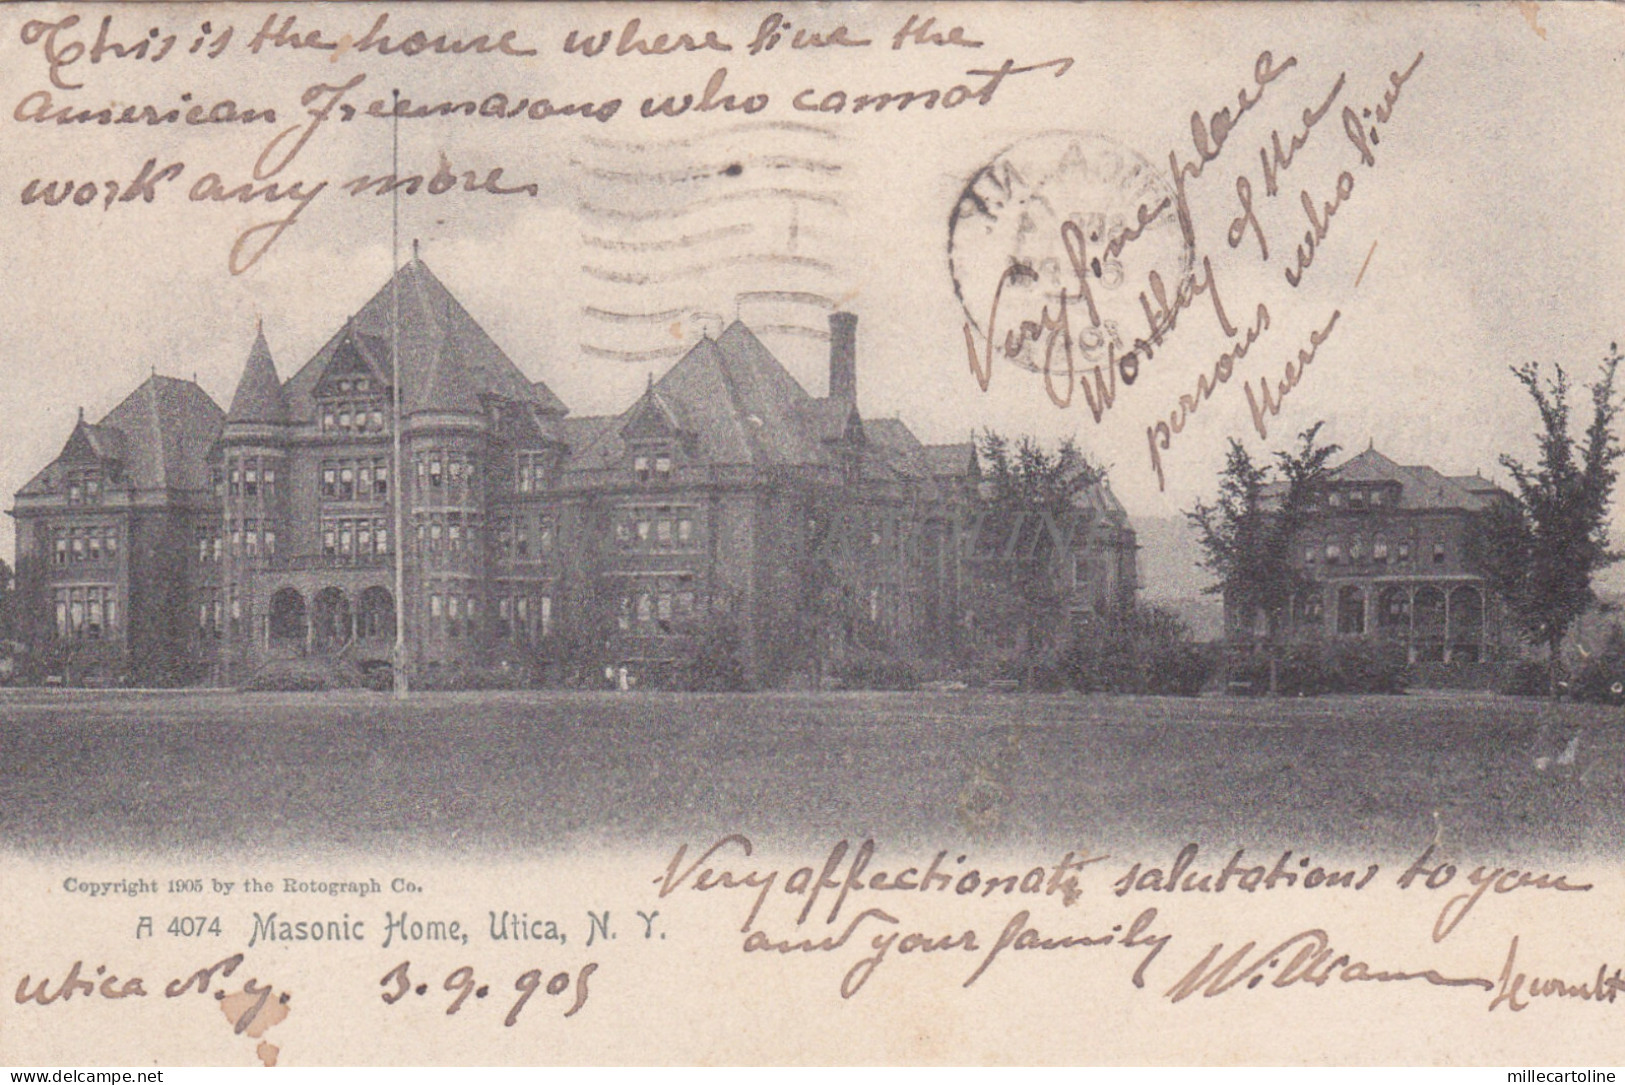 This is the house where live the
American Freemasons who cannot
work any more.
Very fine place
Worthy of the
persons who live
there
Copyright 1905 by the Rotograph Co.
A 4074 Masonic Home, Utica, N. Y.
Very affectionate salutations to you
and your family
William
Utica N.y. 3.9.905
millecartoline